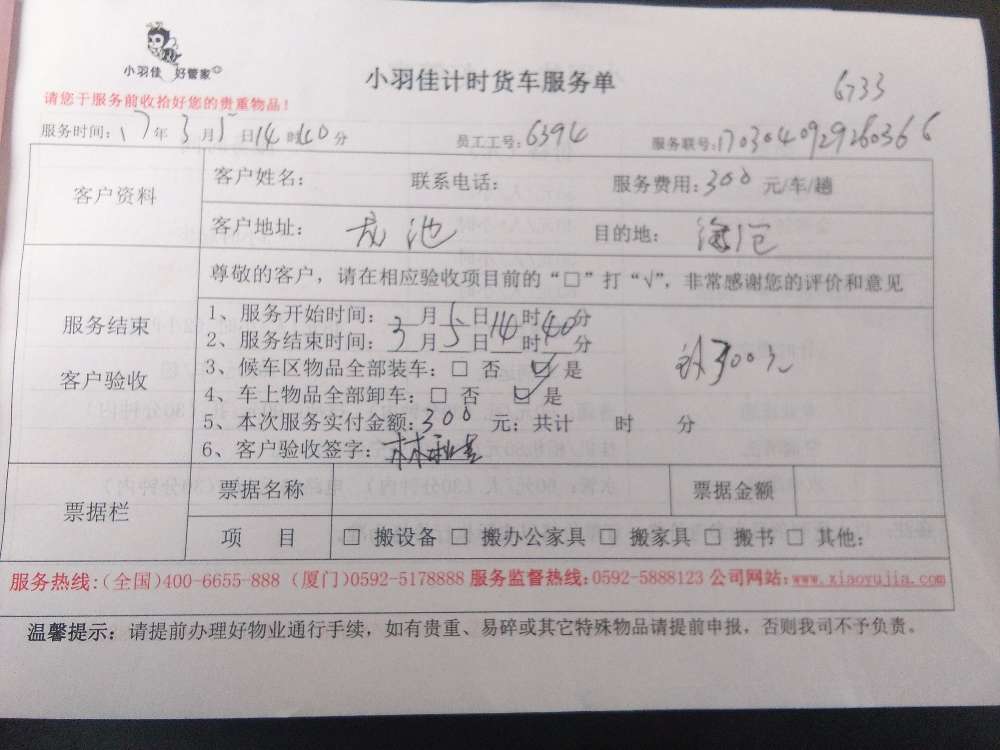 小羽佳 好管家
小羽佳计时货车服务单
6733
请您于服务前收拾好您的贵重物品！
服务时间：17年3月5日14时40分 员工工号：6394 服务联号：170304092926036 6
客户资料
客户姓名： 联系电话： 服务费用：300 元/车/趟
客户地址： 龙池 目的地：
服务结束
客户验收
尊敬的客户，请在相应验收项目前的“□”打“√”，非常感谢您的评价和意见
1、服务开始时间：3月5日14时40分
2、服务结束时间： 月 日 时 分
3、候车区物品全部装车：□ 否 □ 是
4、车上物品全部卸车：□ 否 □ 是
300元
5、本次服务实付金额：300 元；共计 时 分
6、客户验收签字：
票据栏
票据名称 票据金额
项 目 □ 搬设备 □ 搬办公家具 □ 搬家具 □ 搬书 □ 其他：
服务热线：(全国)400-6655-888 (厦门)0592-5178888 服务监督热线：0592-5888123 公司网站：www.xiaoyujia.com
温馨提示：请提前办理好物业通行手续，如有贵重、易碎或其它特殊物品请提前申报，否则我司不予负责。